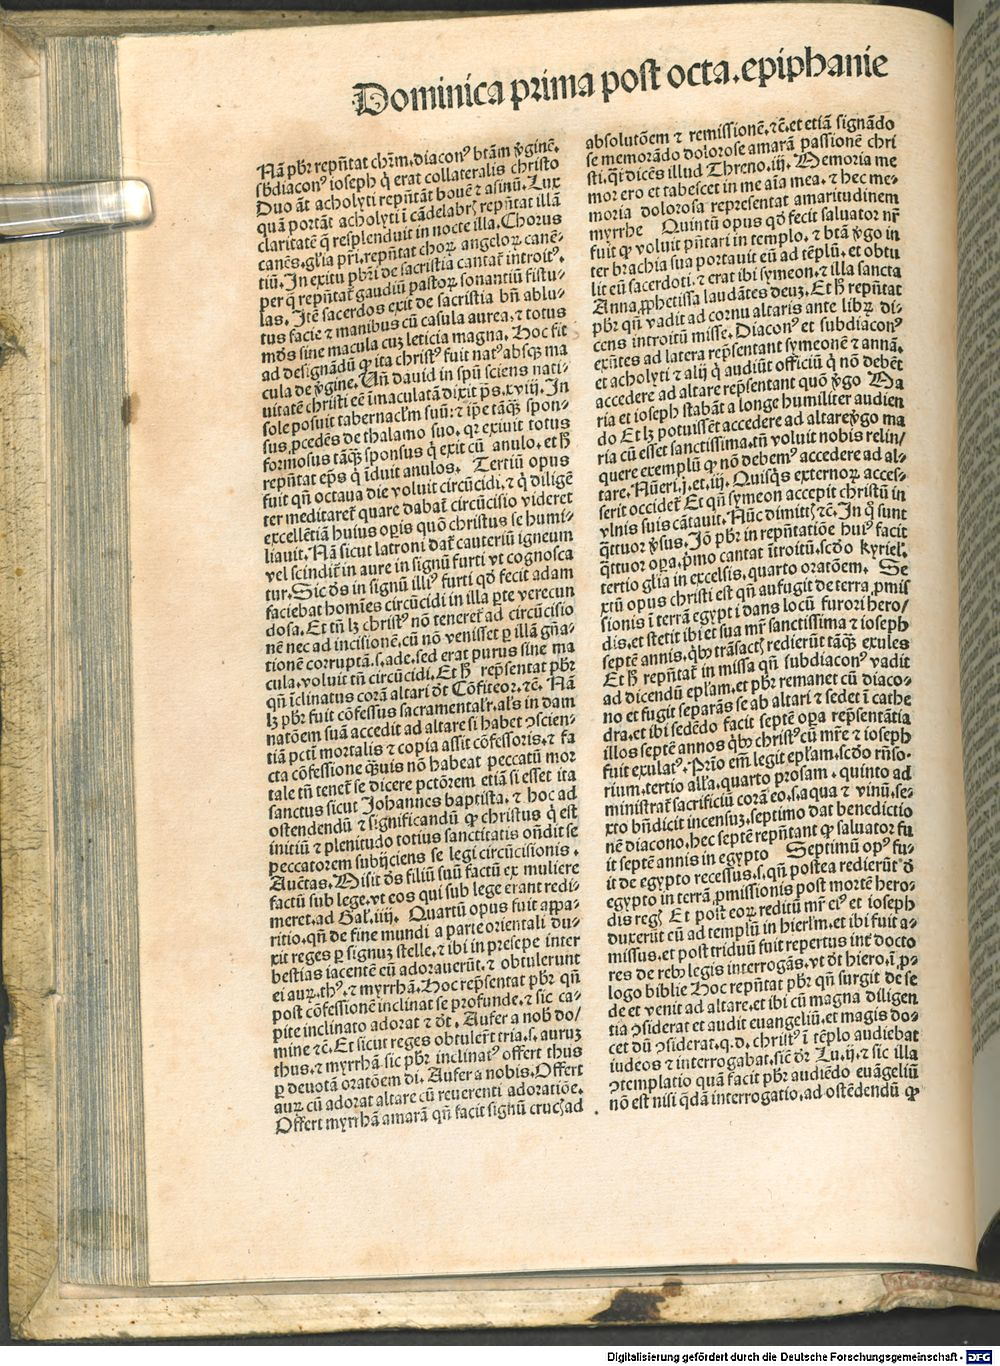 Dominica prima post octa. epiphanie
Nã pbr̃ repñtat chr̃m. diaconꝰ btãm ṽginẽ.
sbdiaconꝰ ioseph q̇ erat collateralis christo
Duo ãt acholyti repñtãt bouẽ ⁊ asinũ. Lux
quã portãt acholyti ĩ cãdelabrꝭ repñtat illã
claritatẽ q̃ resplenduit in nocte illa. Chorus
canẽs. gl̃ia pr̃i. repñtat choꝝ angeloꝝ canẽ⸗
tiũ. In exitu pbr̃i de sacristia cantat̃ introitꝰ.
per q̃ repñtat̃ gaudiũ pastoꝝ sonantiũ fistu⸗
las. Itẽ sacerdos exit de sacristia bñ ablu⸗
tus facie ⁊ manibus cũ casula aurea. ⁊ totus
mõs sine macula cuꝫ leticia magna. Hoc fit
ad designãdũ ꝙ ita christꝰ fuit natꝰ absqꝫ ma
cula de ṽgine. Uñ dauid in spũ sciens nati⸗
uitatẽ christi eẽ ĩmaculatã dixit ps̃. xviij. In
sole posuit tabernacl̃m suũ: ⁊ ip̃e tãqꝫ spon⸗
sus ꝓcedẽs de thalamo suo. qꝛ exiuit totus
formosus tãqꝫ sponsus q̇ exit cũ anulo. et hͦ
repñtat ep̃s q̇ ĩduit anulos. Tertiũ opus
fuit qñ octaua die voluit circũcidi. ⁊ q̇ diligẽ
ter meditaret̃ quare dabat̃ circũcisio videret
excellẽtiã huius opis quõ christus se humi⸗
liauit. Nã sicut latroni dat̃ cauteriũ igneum
vel scindit̃ in aure in signũ furti vt cognosca
tur. Sic ds̃ in signũ illiꝰ furti qd̃ fecit adam
faciebat homĩes circũcidi in illa ꝑte verecun
dosa. Et tñ lꝫ christꝰ nõ teneret̃ ad circũcisio
nẽ nec ad incisionẽ. cũ nõ venisset ꝑ illã gña⸗
tionẽ corruptã. s. ade. sed erat purus sine ma
cula. voluit tñ circũcidi. Et hͦ rep̃sentat pbr̃
qñ ĩclinatus corã altari dõt Cõfiteor. ⁊c̃. Nã
lꝫ pbr̃ fuit cõfessus sacramental̃r. al̃s in dam
natõem suã accedit ad altare si habet ꝯscien⸗
tiã pctĩ mortalis ⁊ copia assit cõfessoris. ⁊ fa
cta cõfessione q̃uis nõ habeat peccatũ mor
tale tñ tenet̃ se dicere pctõrem etiã si esset ita
sanctus sicut Johannes baptista. ⁊ hoc ad
ostendendũ ⁊ significandũ ꝙ christus q̇ est
initiũ ⁊ plenitudo totius sanctitatis oñdit se
peccatorem subijciens se legi circũcisionis.
Auẽtas. Misit ds̃ filiũ suũ factũ ex muliere
factũ sub lege. vt eos qui sub lege erant redi⸗
meret. ad Gal̃. iiij. Quartũ opus fuit appa⸗
ritio. qñ de fine mundi a parte orientali du⸗
xit reges ꝑ signuꝫ stelle. ⁊ ibi in presepe inter
bestias iacentẽ eũ adorauerũt. ⁊ obtulerunt
ei auꝝ. thꝰ. ⁊ myrrhã. Hoc rep̃sentat pbr̃ qñ
post cõfessionẽ inclinat se profunde. ⁊ sic ca⸗
pite inclinato adorat ⁊ dõt. Aufer a nob̃ do/
mine ⁊c̃. Et sicut reges obtuler̃t tria. s. auruꝫ
thus. ⁊ myrrhã sic pbr̃ inclinatꝰ offert thus
ꝑ deuotã oratõem dĩ. Aufer a nobis. Offert
auꝝ cũ adorat altare cũ reuerenti adoratiõe.
Offert myrrhã amarã qñ facit signũ crucꝭ ad
absolutõem ⁊ remissionẽ. ⁊c̃. et etiã signãdo
se memorãdo dolorose amarã passionẽ chri
sti. q̇ dicẽs illud Threno. iij. Memoria me
mor ero et tabescet in me aĩa mea. ⁊ hec me⸗
moria dolorosa representat amaritudinem
myrrhe Quintũ opus qd̃ fecit saluator nr̃
fuit ꝙ voluit pñtari in templo. ⁊ btã ṽgo in
ter brachia sua portauit eũ ad tẽplũ. et obtu
lit eũ sacerdoti. ⁊ erat ibi symeon. ⁊ illa sancta
Anna ꝓphetissa laudãtes deuꝫ. Et hͦ repñtat
pbr̃ qñ vadit ad cornu altaris ante libꝝ di⸗
cens introitũ misse. Diaconꝰ et subdiaconꝰ
exñtes ad latera rep̃sentant symeonẽ ⁊ annã.
et acholyti ⁊ alij q̇ audiũt officiũ q̇ nõ debẽt
accedere ad altare rep̃sentant quõ ṽgo Ma
ria et ioseph stabãt a longe humiliter audien
do Et lꝫ potuissẽt accedere ad altare ṽgo ma
ria cũ esset sanctissima. tñ voluit nobis relin/
quere exemplũ ꝙ nõ debemꝰ accedere ad al⸗
tare. Nũeri. j. et. iij. Quisq̇s externoꝝ acces⸗
serit occidet̃ Et qñ symeon accepit christũ in
vlnis suis cãtauit. Nũc dimittꝭ ⁊c̃. In q̇ sunt
q̃ttuor ṽsus. Jõ pbr̃ in repñtatiõe huiꝰ facit
q̃ttuor oꝑa. p̃mo cantat ĩtroitũ. scd̃o kyriel̃.
tertio gl̃ia in excelsis. quarto oratõem. Se
xtũ opus christi est qñ aufugit de terra ꝓmis
sionis ĩ terrã egypti dans locũ furori hero/
dis. et stetit ibi et sua mr̃ sanctissima ⁊ ioseph
septẽ annis. qͥbꝰ trãsactꝭ redierũt tãqꝫ exules
Et hͦ repñtat̃ in missa qñ subdiaconꝰ vadit
ad dicendũ ep̃lam. et pbr̃ remanet cũ diaco⸗
no et fugit separãs se ab altari ⁊ sedet ĩ cathe
dra. et ibi sedẽdo facit septẽ oꝑa rep̃sentãtia
illos septẽ annos qͥbꝰ christꝰ cũ mr̃e ⁊ ioseph
fuit exulatꝰ. Prĩo em̃ legit ep̃lam. scd̃o rñso⸗
rium. tertio all̃a. quarto prosam. quinto ad
ministrat̃ sacrificiũ corã eo. s. aqua ⁊ vinũ. se⸗
xto bñdicit incensuꝫ. septimo dat benedictio
nẽ diacono. hec septẽ repñtant ꝙ saluator fu
it septẽ annis in egypto Septimũ opꝰ fu⸗
it de egypto recessus. s. qñ postea redierũt d̃
egypto in terrã ꝓmissionis post mortẽ hero⸗
dis regꝭ Et post eoꝝ reditũ mr̃ eiꝰ et ioseph
duxerũt eũ ad templũ in hierl̃m. et ibi fuit a⸗
missus. et post triduũ fuit repertus int̃ docto
res de rebꝰ legis interrogãs. vt dõt hiero. ĩ ꝓ⸗
logo biblie Hoc repñtat pbr̃ qñ surgit de se
de et venit ad altare. et ibi cũ magna diligen
tia ꝯsiderat et audit euangeliũ. et magis do⸗
cet dũ ꝯsiderat. q. d. christꝰ ĩ tẽplo audiebat
iudeos ⁊ interrogabat. siẽ dr̃ Lu. ij. ⁊ sic illa
ꝯtemplatio quã facit pbr̃ audiẽdo euãgeliũ
nõ est nisi q̃dã interrogatio. ad ostẽdendũ ꝙ
Digitalisierung gefördert durch die Deutsche Forschungsgemeinschaft - DFG